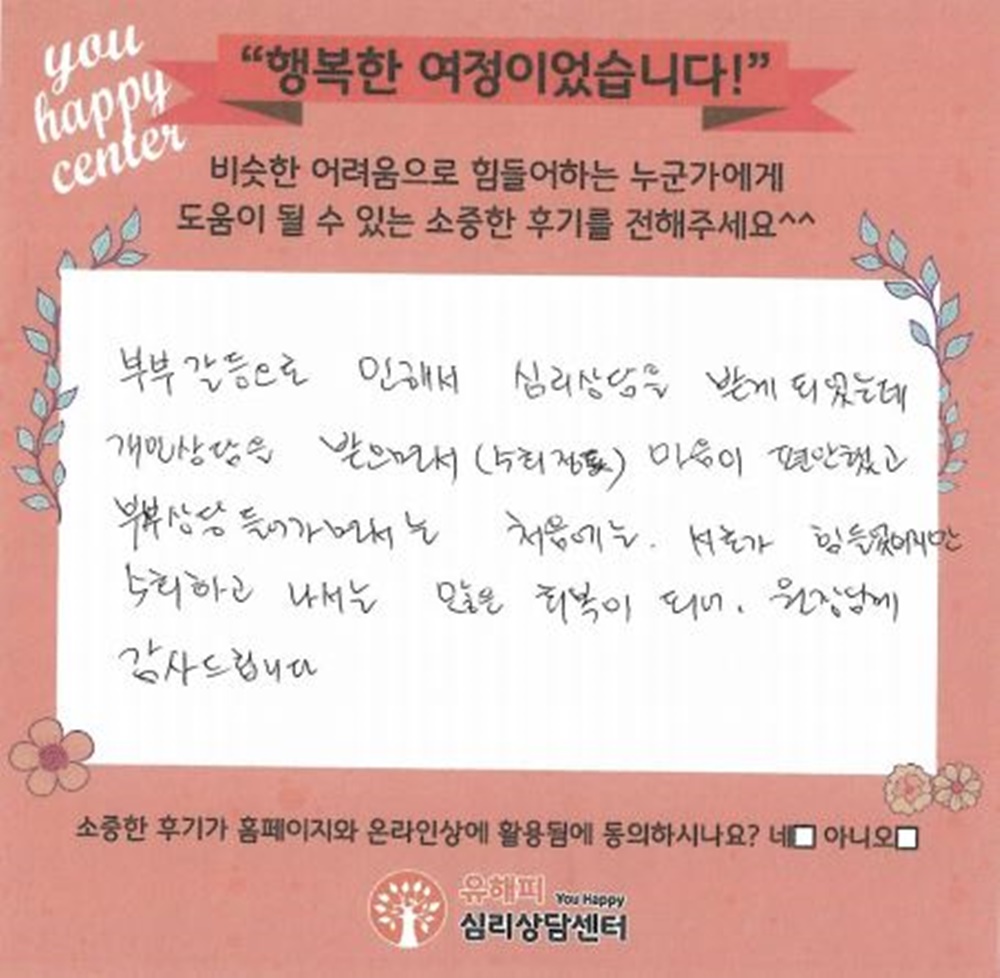 you
happy
center
“행복한 여정이었습니다!”
비슷한 어려움으로 힘들어하는 누군가에게
도움이 될 수 있는 소중한 후기를 전해주세요^^
부부갈등으로 인해서 심리상담을 받게 되었는데
개인상담을 받으면서 (수희 마음이 편안했고
부부상담 들어가면서는 처음에는. 서로가 힘들었지만
수희하고 나서는 오늘은 회복이 되너. 원장님께
감사드립니다
소중한 후기가 홈페이지와 온라인상에 활용됨에 동의하시나요? 네 아니오
유해피 You Happy
심리상담센터